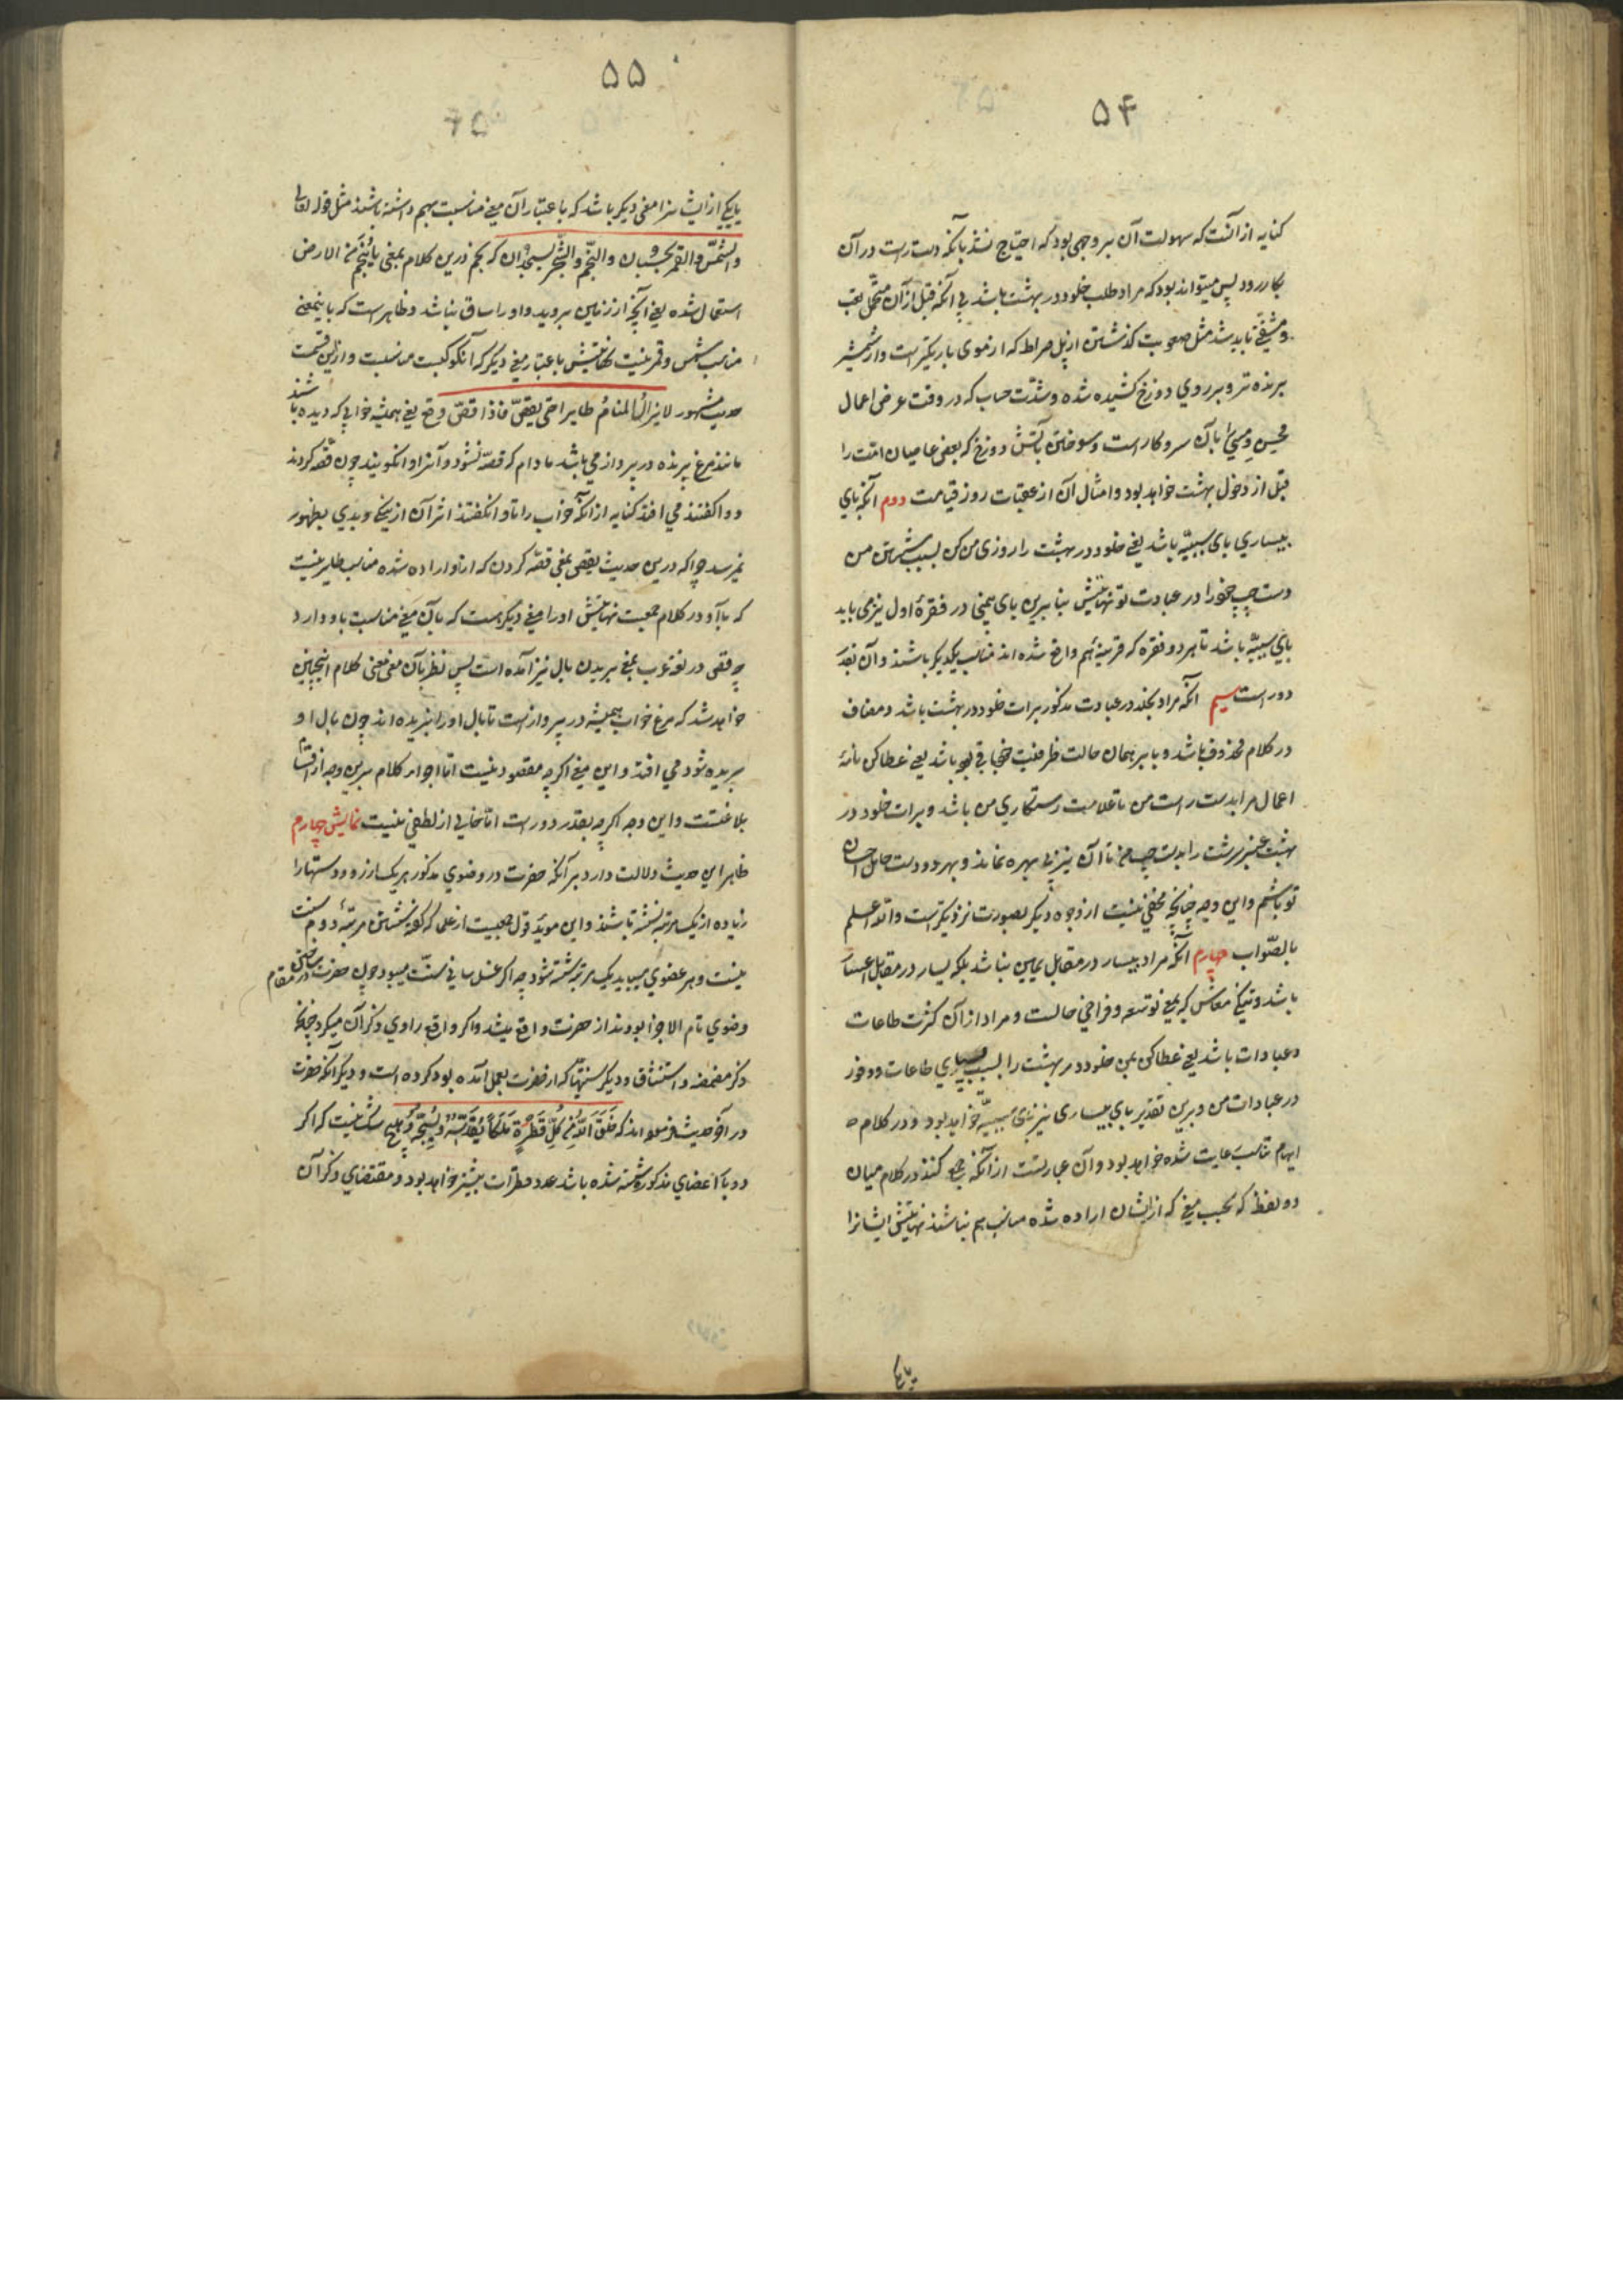 ۵۴
کنایه از آنست که سهولت آن بروجهی بود که احتیاج نشد بآنکه دست راست در آن
بکار رود پس میتواند بود که مراد طلب خلود در بهشت باشد بی آنکه قبل از آن متحمل تعب
و مشقتی باید شد مثل صعوبت کذشتن از پل صراط که از موی باریکتر است و از شمشیر
برنده تر و بر روی دوزخ کشیده شده و شدّت حساب که در وقت عرض اعمال
محسن و مسیء را بآن سر و کار است و سوختن بآتش دوزخ که بعضی عاصیان امّت را
قبل از دخول بهشت خواهد بود و امثال آن از عقبات روز قیامت دوم آنکه بای
بیساری بای سببیّه باشد یعنی خلود در بهشت را روزی من کن بسبب شستن من
دست چپ خود را در عبادت تو نهایتش بنابرین بای بیمینی در فقرهٔ اول نیز می باید
بای سببیّه باشد تا هر دو فقره که قرینهٔ هم واقع شده اند مناسب یکدیکر باشند و آن بغایت
دور است سیم آنکه مراد بخلد در عبارت مذکور برات خلود در بهشت باشد و مضاف
در کلام محذوف باشد و با بر همان حالت ظرفیت خود باقی باشد یعنی عطا کن نامهٔ
اعمال مرا بدست راست من تا علامت رستکاری من باشد و برات خلود در
بهشت عنبر سرشت را بدست چپ من تا آن نیز بی بهره نماند و بهر دو دست حامل احسان
تو باشم و این وجه چنانچه مخفی نیست از وجوه دیکر بصورت نزدیکتر است والله اعلم
بالصّواب چهارم آنکه مراد بیسار در مقابل یمین نباشد بلکه یسار در مقابل اعسار
باشد و نیکی معاش که بمعنی توسعه و فراخی حالست و مراد از آن کثرت طاعات
و عبادات باشد یعنی عطا کن بمن خلود در بهشت را بسبب بسیاری طاعات و وفور
در عبادات من و برین تقدیر بای بیساری نیز بای سببیّه خواهد بود و در کلام
ایهام تناسب رعایت شده خواهد بود و آن عبارتست از آنکه جمع کنند در کلام میان
دو لفظ که بحسب معنی که از ایشان اراده شده مناسب هم نباشند نهایتش ایشانرا
یا یکی
۵۵
یا یکی از ایشانرا معنی دیکر باشد که باعتبار آن معنی مناسبت بهم داشته باشند مثل قوله تعالی
والشّمس والقمر بحسبان والنّجم والشّجر یسجدان که نجم درین کلام بمعنی ما ینجم من الارض
استعمال شده یعنی آنچه از زمین بروید و او را ساق نباشد و ظاهر است که باینمعنی
مناسب شمس و قمر نیست نهایتش باعتبار معنی دیکر که آن کوکبست مناسبست و ازین قسمست
حدیث مشهور لایزال المنام طایرا حتی یقصّ فاذا قصّ وقع یعنی همیشه خوابی که دیده باشند
مانند مرغ پرنده در پرواز می باشد مادام که قصّه نشود و آنرا وانکویند چون قصّه کردند
و واکفتند می افتد کنایه از آنکه خواب را تا وانکفتند اثر آن از نیکی و بدی بظهور
نمیرسد چرا که درین حدیث یقصّ بمعنی قصّه کردن که از او اراده شده مناسب طایر نیست
که با او در کلام جمعست نهایتش او را معنی دیکر هست که بآن معنی مناسبت باو دارد
چه قصّ در لغة عرب بمعنی بریدن بال نیز آمده است پس نظر بآن معنی معنی کلام اینچنین
خواهد شد که مرغ خواب همیشه در پرواز است تا بال او را نبریده اند چون بال او
بریده شود می افتد و این معنی اکرچه مقصود نیست امّا اجراء کلام برین وجه از اقسام
بلاغتست و این وجه اکرچه بقدر دور است امّا خالی از لطفی نیست نمایش چهارم
ظاهر این حدیث دلالت دارد بر آنکه حضرت در وضوی مذکور هر یک از رو و دستها را
زیاده از یک مرتبه نشسته باشند و این مؤیّد قول جمعیست از علما که کویند شستن مرتبهٔ دوم سنت
نیست و هر عضوی میباید یک مرتبه شسته شود چه اکر غسل ثانی سنّت میبود چون حضرت در مقام
وضوی تام الاجزا بودند از حضرت واقع میشد و اکر واقع راوی ذکر آن میکرد چنانچه
ذکر مضمضه و استنشاق و دیکر سنّتها که از حضرت بعمل آمده بود کرده است و دیکر آنکه حضرت
در آخر حدیث فرموده اند که خَلَقَ اللّهُ مِنْ کُلِّ قَطْرَةٍ مَلَکاً یُقَدِّسُهُ وَ یُسَبِّحُهُ شک نیست که اکر
دو بار اعضای مذکور شسته شده باشد عدد قطرات بیشتر خواهد بود و مقتضای ذکر آن